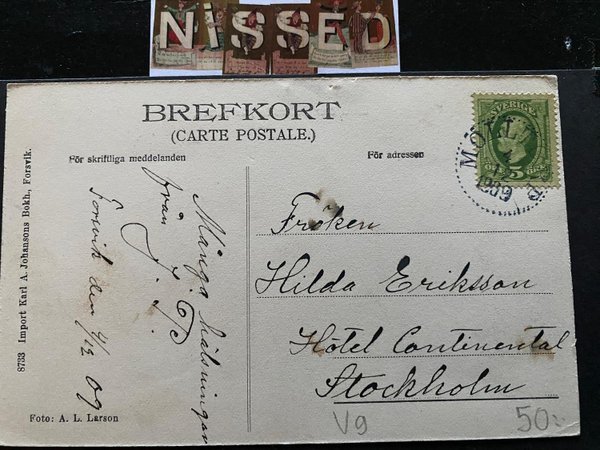 NISSED
BREFKORT
(CARTE POSTALE.)
För skriftliga meddelanden
För adressen
SVERIGE
5 ÖRE
1909
Många hälsningar
från J. P.
Forsvik den 4/12 09
Fröken
Hilda Eriksson
Hôtel Continental
Stockholm
8733 Import Karl A. Johansons Bokh., Forsvik.
Foto: A. L. Larson
V9
50:-